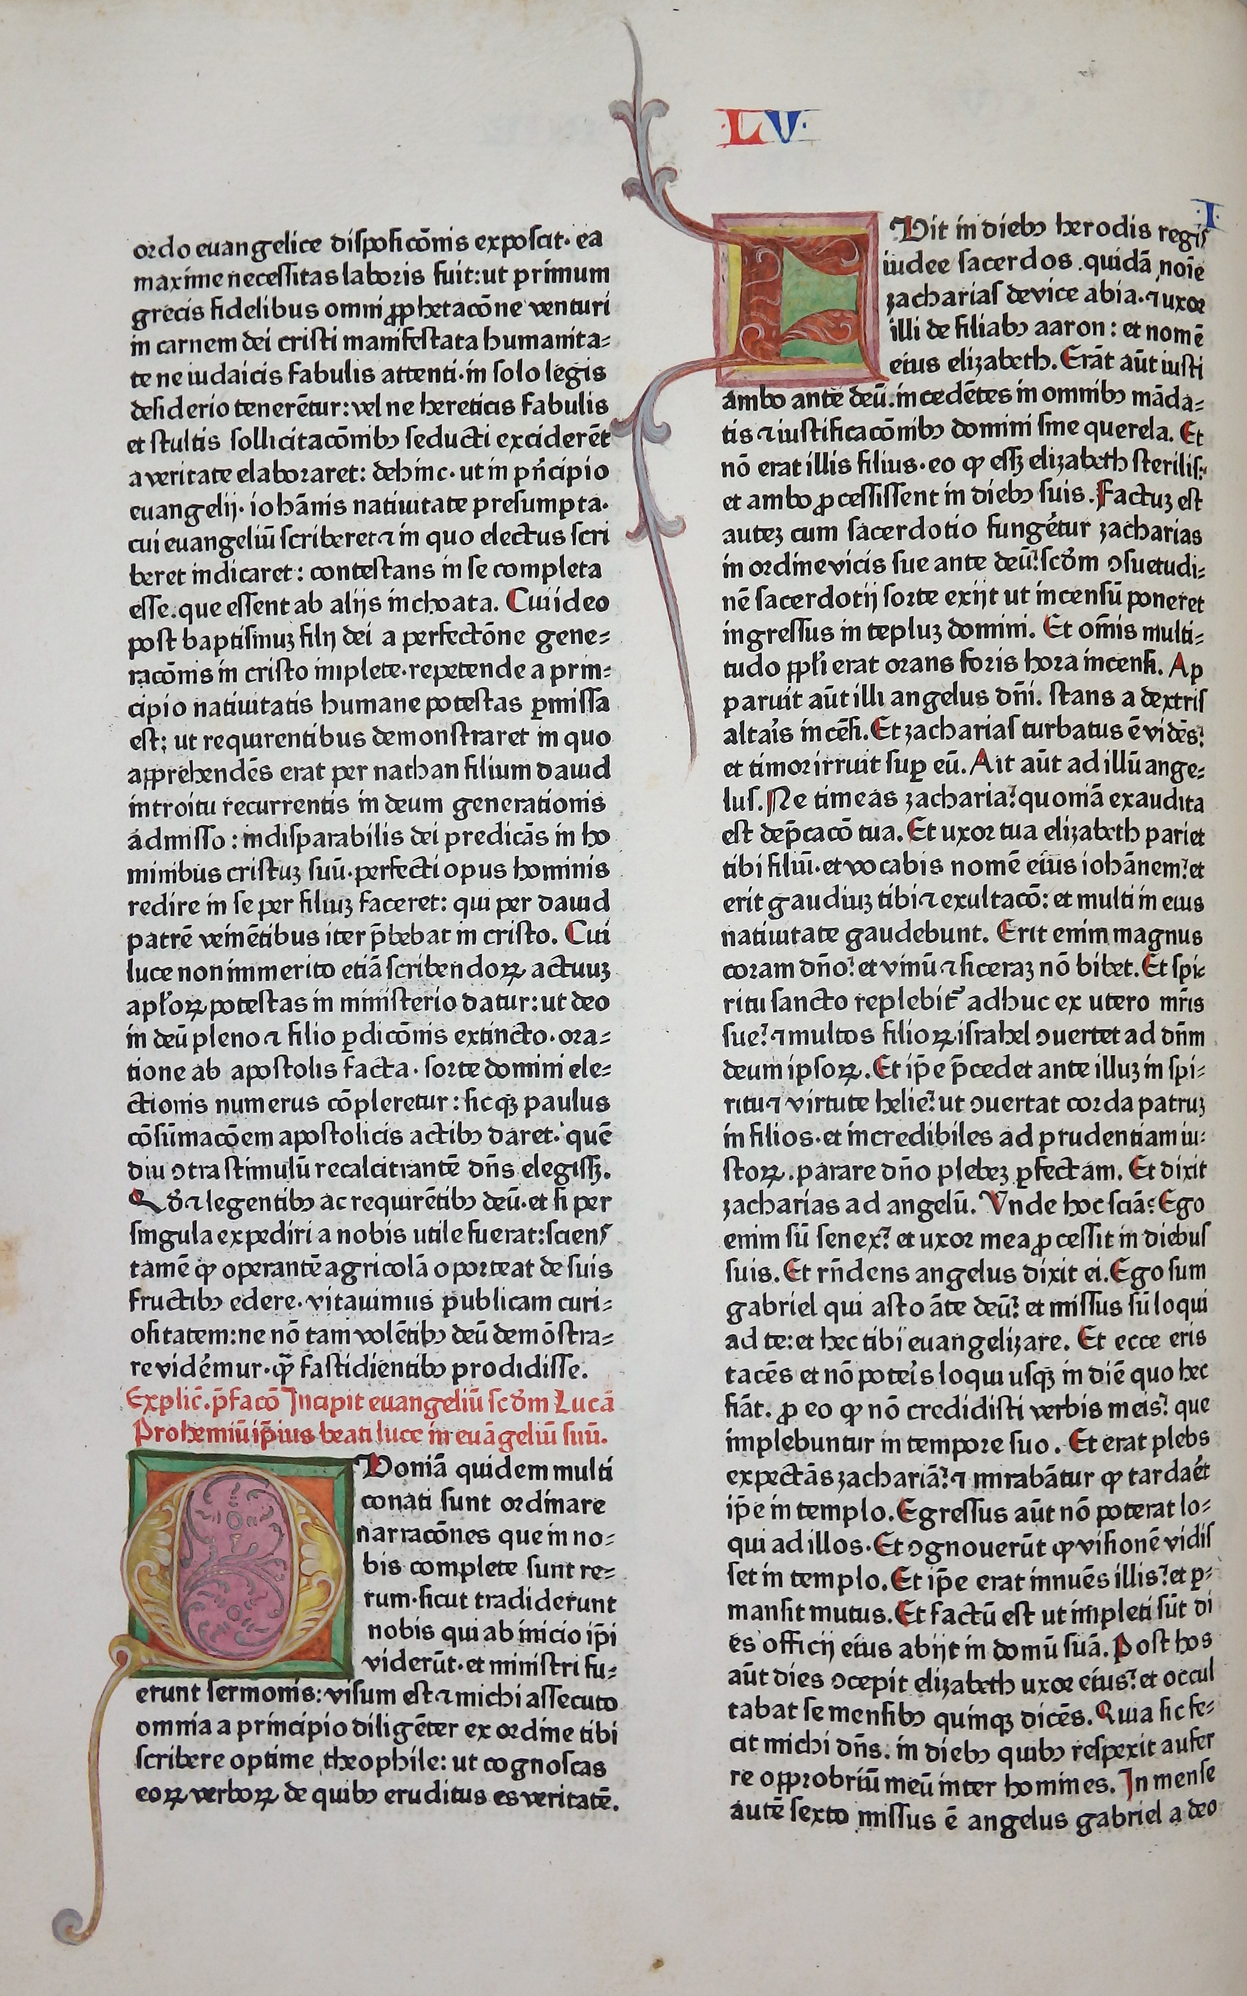 LV
I
ordo euangelice disposicōnis exposcit· ea
maxime necessitas laboris fuit: ut primum
grecis fidelibus omni ꝓphetacōne venturi
in carnem dei cristi manifestata humanita⸗
te ne iudaicis fabulis attenti· in solo legis
desiderio tenerētur: vel ne hereticis fabulis
et stultis sollicitacōnibꝫ seducti exciderēt
a veritate elaboraret: dehinc· ut in pn̄cipio
euangelij· iohānis natiuitate presumpta·
cui euangeliū scriberet ⁊ in quo electus scri
beret indicaret: contestans in se completa
esse. que essent ab alijs inchoata. Cui ideo
post baptismuꝫ filij dei a perfectōne gene⸗
racōnis in cristo implete· repetende a prin⸗
cipio natiuitatis humane potestas ꝑmissa
est: ut requirentibus demonstraret in quo
apprehendēs erat per nathan filium dauid
introitu recurrentis in deum generationis
admisso: indisparabilis dei predicās in ho
minibus cristuꝫ suū· perfecti opus hominis
redire in se per filiuꝫ faceret: qui per dauid
patrē veniētibus iter p̄bebat in cristo. Cui
luce non immerito etiā scribendoꝝ actuuꝫ
apl'oꝝ potestas in ministerio datur: ut deo
in deū pleno ⁊ filio ꝑdicōnis extincto· ora⸗
tione ab apostolis facta· sorte domini ele⸗
ctionis numerus cōpleretur: sicqꝫ paulus
cōsūmacōem apostolicis actibꝫ daret· quē
diu ↄtra stimulū recalcitrantē dn̄s elegissꝫ.
Qd̄ ⁊ legentibꝫ ac requirētibꝫ deū· et si per
singula expediri a nobis utile fuerat: sciens
tamē ꝙ operantē agricolā oporteat de suis
fructibꝫ edere· vitauimus publicam curi⸗
ositatem: ne nō tam volētibꝫ deū demōstra⸗
re videremur· ꝙ̄ fastidientibꝫ prodidisse.
Explic̄. p̄facō Incipit euangeliū scd̄m Lucā
Prohemiū ip̄ius beati luce in euāgeliū suū.
Quoniā quidem multi
conati sunt ordinare
narracōnes que in no⸗
bis complete sunt re⸗
rum· sicut tradiderunt
nobis qui ab inicio ip̄i
viderūt· et ministri fu⸗
erunt sermonis: visum est ⁊ michi assecuto
omnia a principio diligēter ex ordine tibi
scribere optime theophile: ut cognoscas
eoꝝ verboꝝ de quibꝫ eruditus es veritatē.
Fuit in diebꝫ herodis regis
iudee sacerdos . quidā noīe
zacharias de vice abia· ⁊ uxor
illi de filiabꝫ aaron: et nomē
eius elizabeth. Erāt aūt iusti
ambo ante deū. incedētes in omnibꝫ māda⸗
tis ⁊ iustificacōnibꝫ domini sine querela. Et
nō erat illis filius· eo ꝙ essꝫ elizabeth sterilis:
et ambo ꝓcessissent in diebꝫ suis. Factuꝫ est
auteꝫ cum sacerdotio fungēretur zacharias
in ordine vicis sue ante deū: scd̄m ↄsuetudi⸗
nē sacerdotij sorte exijt ut incensū poneret
ingressus in tēpluꝫ domini. Et om̄is multi⸗
tudo ppl'i erat orans foris hora incensi. Ap
paruit aūt illi angelus dn̄i. stans a dextris
altaris incēsi. Et zacharias turbatus ē vidēs:
et timor irruit suꝑ eū. Ait aūt ad illū ange⸗
lus. Ne timeas zacharia: quoniā exaudita
est dep̄cacō tua. Et uxor tua elizabeth pariet
tibi filiū· et vocabis nomē eius iohānem: et
erit gaudiuꝫ tibi ⁊ exultacō: et multi in eius
natiuitate gaudebunt. Erit enim magnus
coram dn̄o: et vinū ⁊ siceraꝫ nō bibet. Et spi⸗
ritu sancto replebit᷑ adhuc ex utero mr̄is
sue: ⁊ multos filioꝝ israhel ↄuertet ad dn̄m
deum ipsoꝝ. Et ip̄e p̄cedet ante illuꝫ in spi⸗
ritu ⁊ virtute helie: ut ↄuertat corda patruꝫ
in filios· et incredibiles ad prudentiam iu⸗
stoꝝ. parare dn̄o plebeꝫ ꝑfectam. Et dixit
zacharias ad angelū. Vnde hoc sciā: Ego
enim sū senex: et uxor mea ꝓcessit in diebus
suis. Et rn̄dens angelus dixit ei. Ego sum
gabriel qui asto āte deū: et missus sū loqui
ad te: et hec tibi euangelizare. Et ecce eris
tacēs et nō poteris loqui usqꝫ in diē quo hec
fiāt. ꝓ eo ꝙ nō credidisti verbis meis: que
implebuntur in tempore suo . Et erat plebs
expectās zachariā: ⁊ mirabātur ꝙ tardaret
ip̄e in templo. Egressus aūt nō poterat lo⸗
qui ad illos. Et ↄgnouerūt ꝙ visionē vidis
set in templo. Et ip̄e erat innuēs illis: et ꝑ⸗
mansit mutus. Et factū est ut impleti sūt di
es officij eius abijt in domū suā. Post hos
aūt dies ↄcepit elizabeth uxor eius: et occul
tabat se mensibꝫ quinqꝫ dicēs. Quia sic fe⸗
cit michi dn̄s. in diebꝫ quibꝫ respexit aufer
re opprobriū meū inter homines. In mense
autē sexto missus ē angelus gabriel a deo